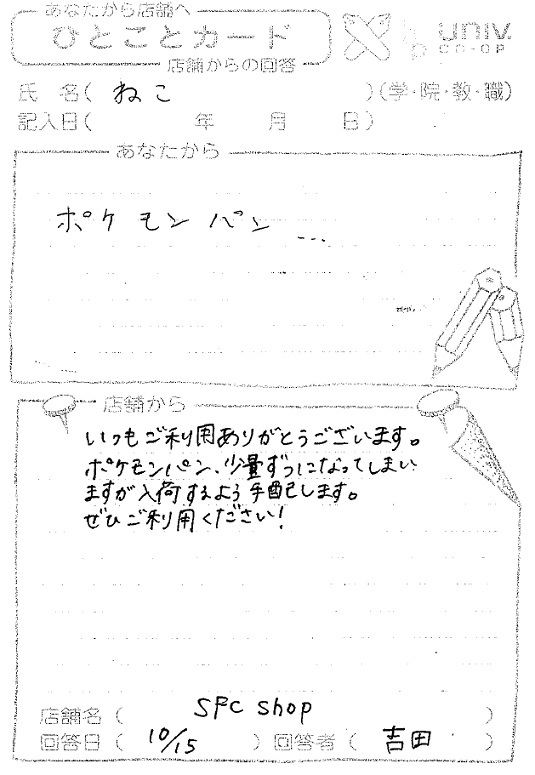 あなたから店舗へ
ひとことカード
店舗からの回答
univ.
CO-OP
氏 名( ねこ )(学・院・教・職)
記入日( 年 月 日)
あなたから
ポケモンパン…
店舗から
いつもご利用ありがとうございます。
ポケモンパン、少量ずつになってしまい
ますが入荷するよう手配します。
ぜひご利用ください!
店舗名( SPC shop )
回答日( 10/15 ) 回答者( 吉田 )